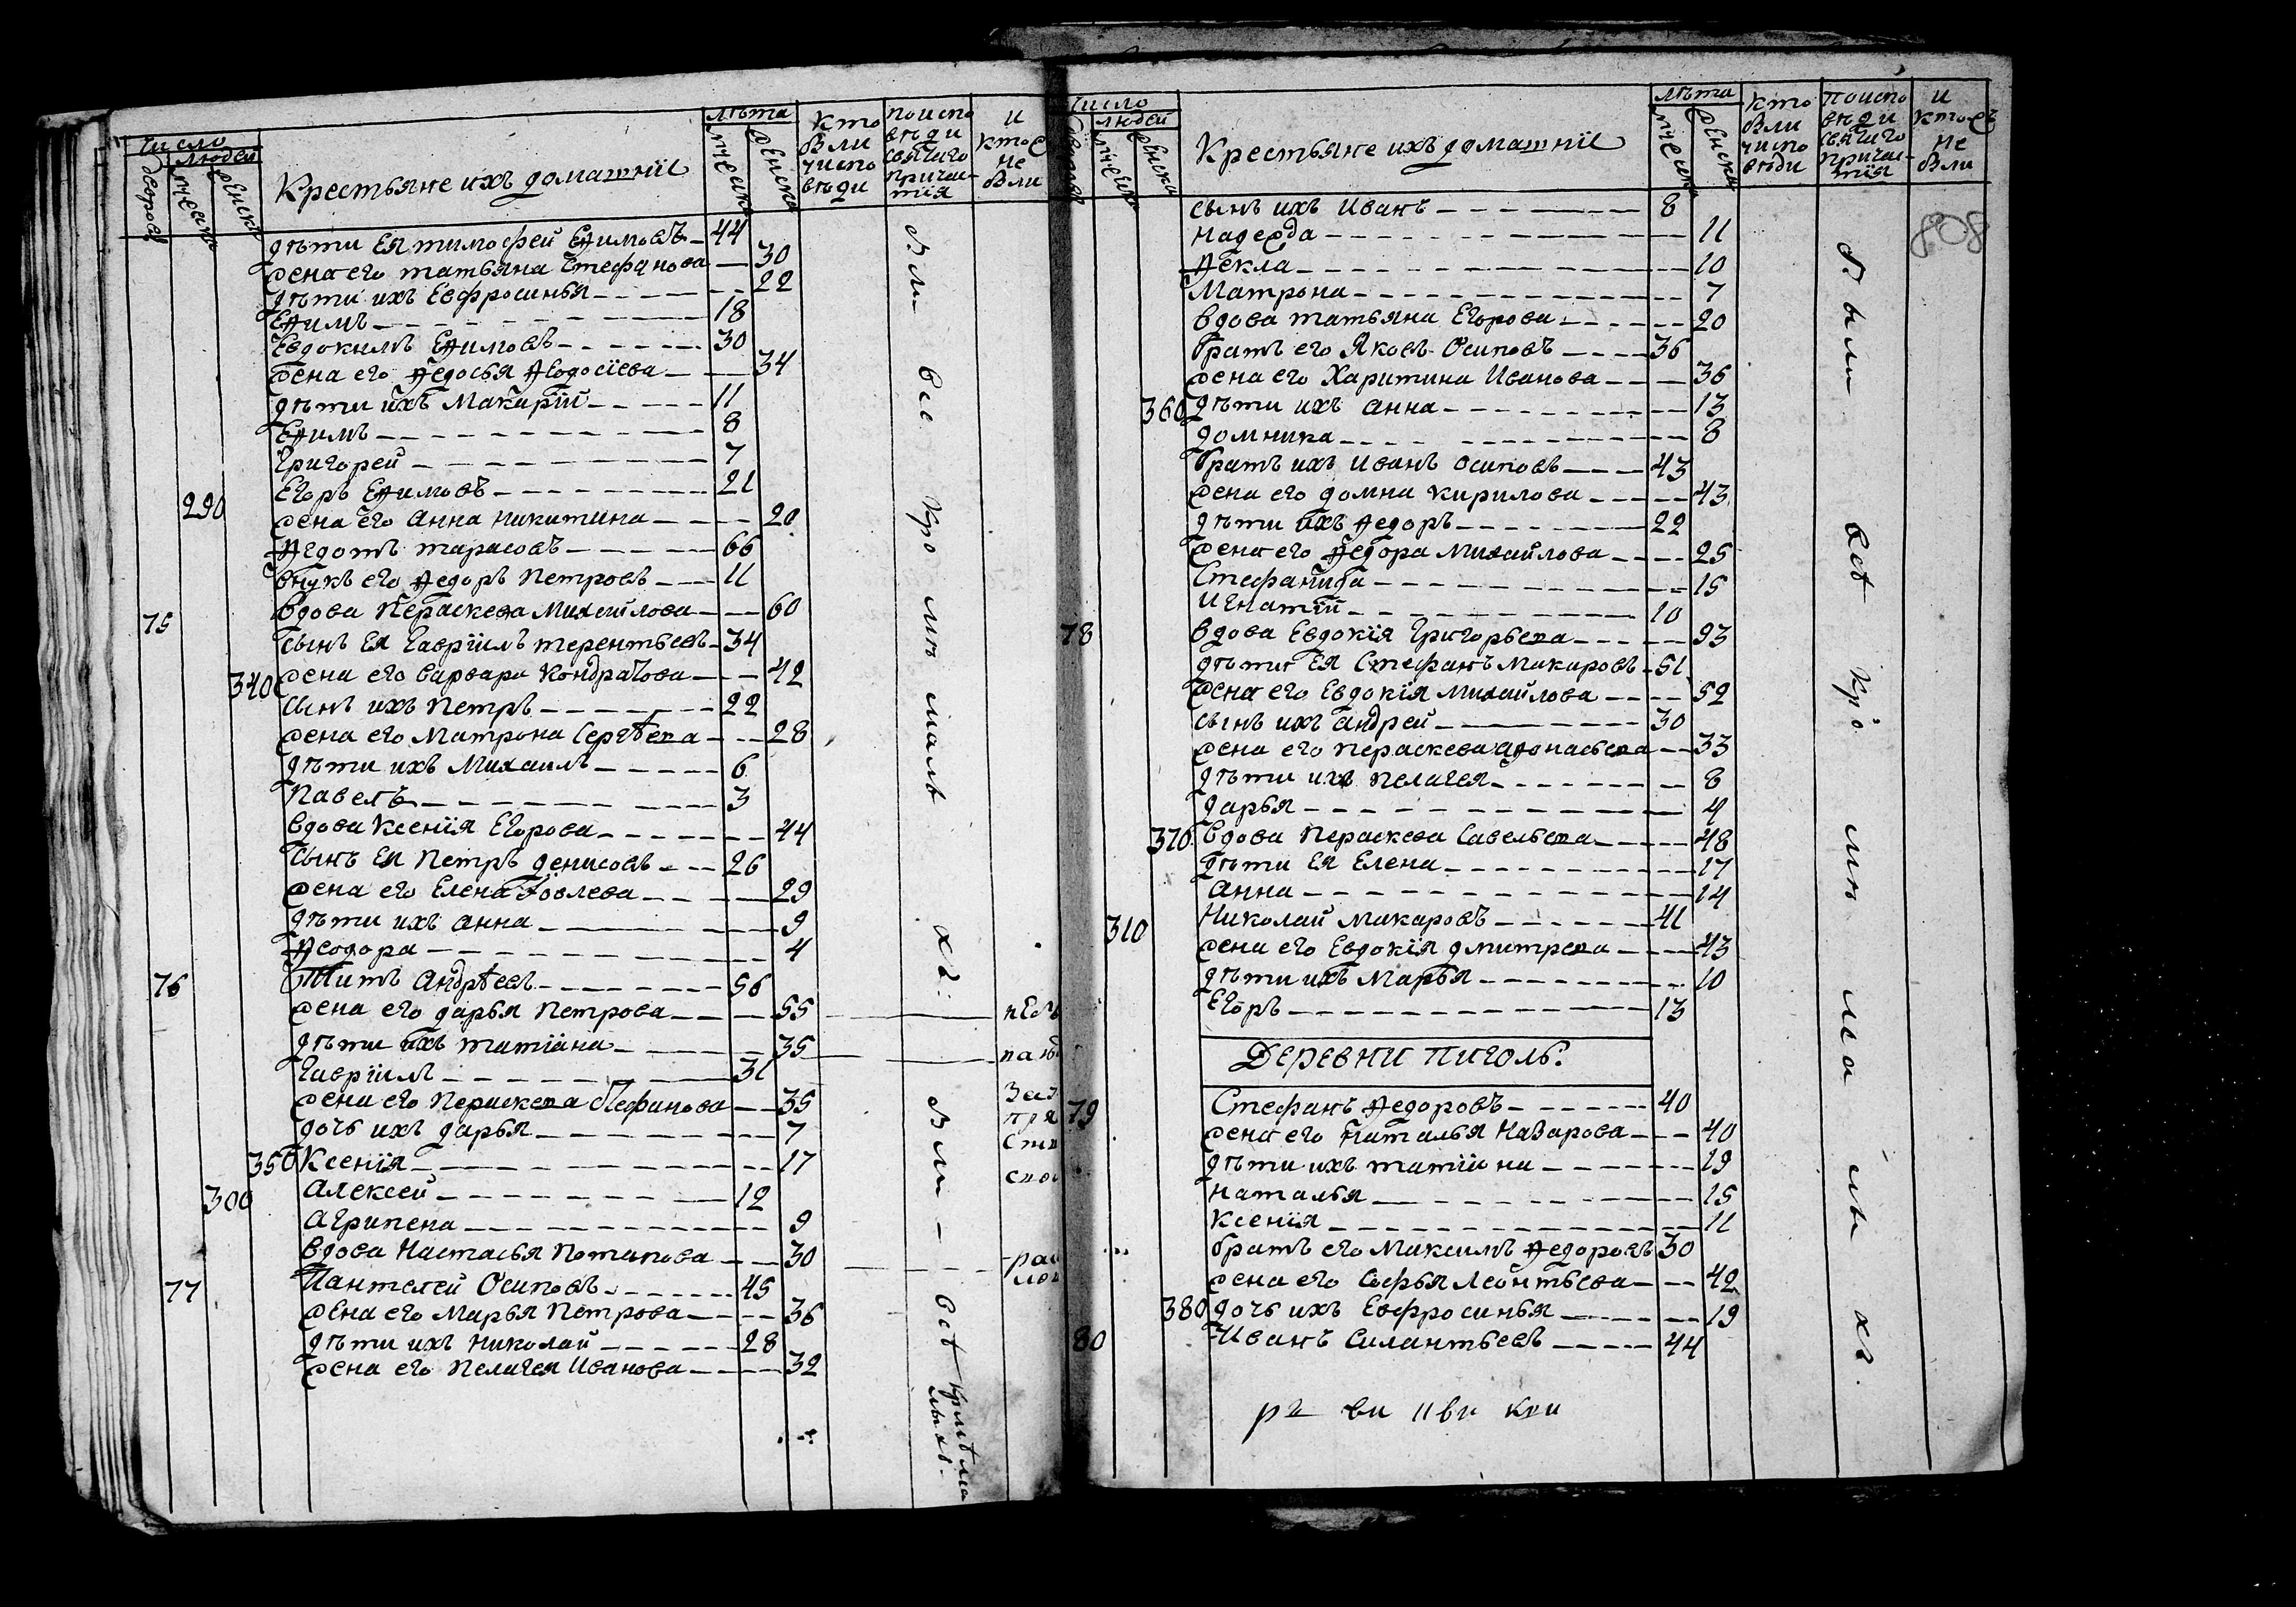 Число
людей
дворовъ
мужеска
женска
Крестьяне ихъ домашнїе
лѣта
мужеска
женска
кто были у исповѣди
по исповѣди и святаго причастїя
и кто же не были
дѣти ея тимофей Еѳимовъ 44
жена его татьяна Стефанова 30
дѣти ихъ Евфросинья 22
Еѳимъ 18
Евдокимъ Еѳимовъ 30
жена его Ѳедосья Ѳеодосїева 34
дѣти ихъ Макарїй 11
Еѳимъ 8
Григорей 7
Егоръ Еѳимовъ 21
290 жена его Анна никитина 20
Ѳедотъ тарасовъ 66
внукъ его Ѳедоръ Петровъ 11
75 вдова Пераскева Михайлова 60
сынъ ея Гаврїилъ терентьевъ 34
340 жена его варвара Кондратова 42
сынъ ихъ Петръ 22
жена его Матрона Сергѣева 28
дѣти ихъ Михаилъ 6
Павелъ 3
вдова Ксенїя Егорова 44
сынъ ея Петръ денисовъ 26
жена его Елена Іовлева 29
дѣти ихъ анна 9
Ѳеодора 4
76 Титъ Андрѣевъ 56
жена его дарья Петрова 55
дѣти ихъ татїана 35
Гаврїилъ 31
жена его Пераскева Стефанова 35
дочь ихъ дарья 7
350 Ксенїя 17
300 Алексей 12
Агрипена 9
вдова Настасья Потапова 30
77 Пантелей Осиповъ 45
жена его Марья Петрова 36
дѣти ихъ николай 28
жена его Пелагея Иванова 32
Число
людей
мужеска
женска
Крестьяне ихъ домашнїе
лѣта
мужеска
женска
кто были у исповѣди
по исповѣди и святаго причастїя
и кто же не были
808
сынъ ихъ Иванъ 8
надежда 11
Ѳекла 10
Матрона 7
вдова татьяна Егорова 20
братъ его Яковъ Осиповъ 36
жена его Харитина Иванова 36
360 дѣти ихъ анна 13
домника 8
братъ ихъ Иванъ Осиповъ 43
жена его домна кирилова 43
дѣти ихъ Ѳедоръ 22
жена его Ѳедора Михайлова 25
Стефанида 15
Игнатїй 10
78 вдова Евдокїя Григорьева 93
дѣти ея Стефанъ Макаровъ 51
жена его Евдокїя Михайлова 52
сынъ ихъ андрей 30
жена его пераскева аѳонасьева 33
дѣти ихъ пелагея 8
дарья 4
370 вдова Пераскева Савельева 48
дѣти ея Елена 17
анна 14
310 Николай Макаровъ 41
жена его Евдокїя дмитрева 43
дѣти ихъ Марья 10
Егоръ 13
Деревни Пиголь.
79 Стефанъ Ѳедоровъ 40
жена его Наталья Назарова 40
дѣти ихъ татїана 19
наталья 15
Ксенїя 11
братъ его Максимъ Ѳедоровъ 30
жена его Софья Леонтьева 42
380 дочь ихъ Евфросинья 19
80 Иванъ Силантьевъ 44